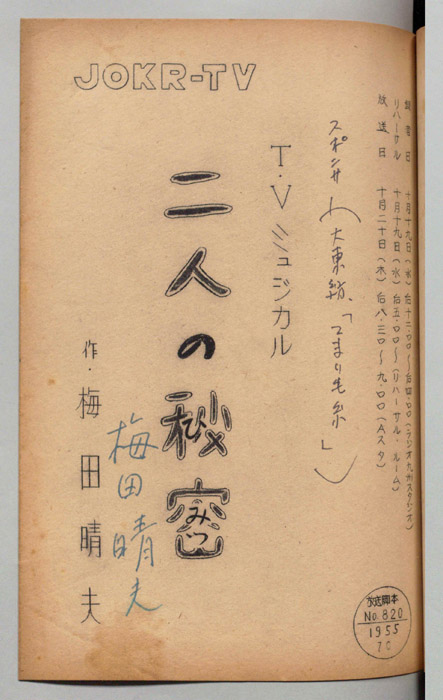 JOKR-TV
録音日 十月十九日(水) 后十二・〇〇〜后四・〇〇(ラジオ九州スタジオ)
リハーサル 十月十九日(水) 后五・〇〇〜(リハーサル・ルーム)
放送日 十月二十日(木) 后八・三〇〜九・〇〇(Aスタ)
スポンサー(大東紡、「こまり毛糸」)
T・Vミュジカル
二人の秘密
みつ
作・梅田晴夫
梅田晴夫
放送脚本
No.820
1955